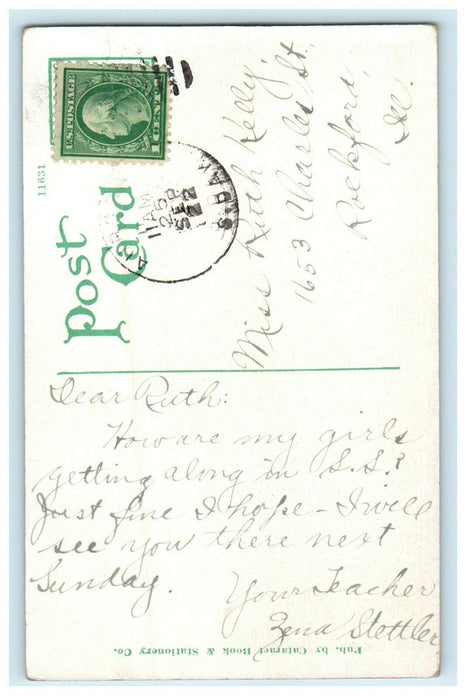 U.S. POSTAGE
1 CENT 1
11631
11 AM
SEP
Post
Card
Miss Ruth Kelly,
1653 Charles St,
Rockford,
Ill.
Dear Ruth:
How are my girls
getting along in S.S.?
Just fine I hope - I will
see you there next
Sunday.
Your Teacher
Zena Stottler
Pub. by Cataract Book & Stationery Co.